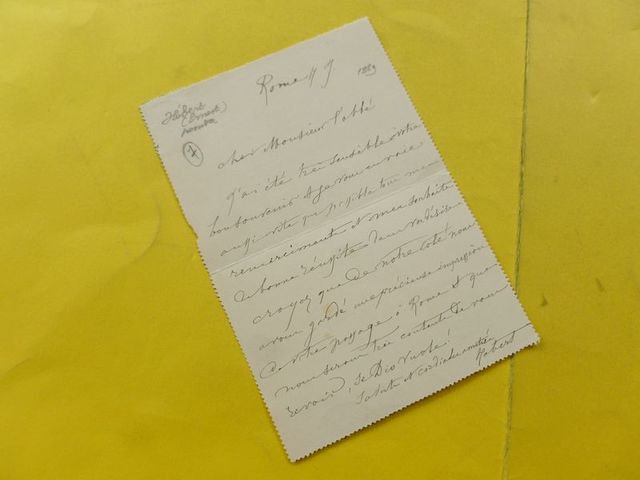 Hébert
(Ernest)
peintre
7
Rome 11 9
1889
cher Monsieur l'abbé
J'ai été très sensible à votre
bon souvenir et je vous envoie
aussi vite que possible tous mes
remerciments et mes souhaits
de bonne réussite dans
croyez que de notre coté nous
avons gardé une précieuse impression
de votre passage à Rome et que
nous serons très contents de vous
revoir, se Dio vuole!
Salute et cordiale amitié
Hébert